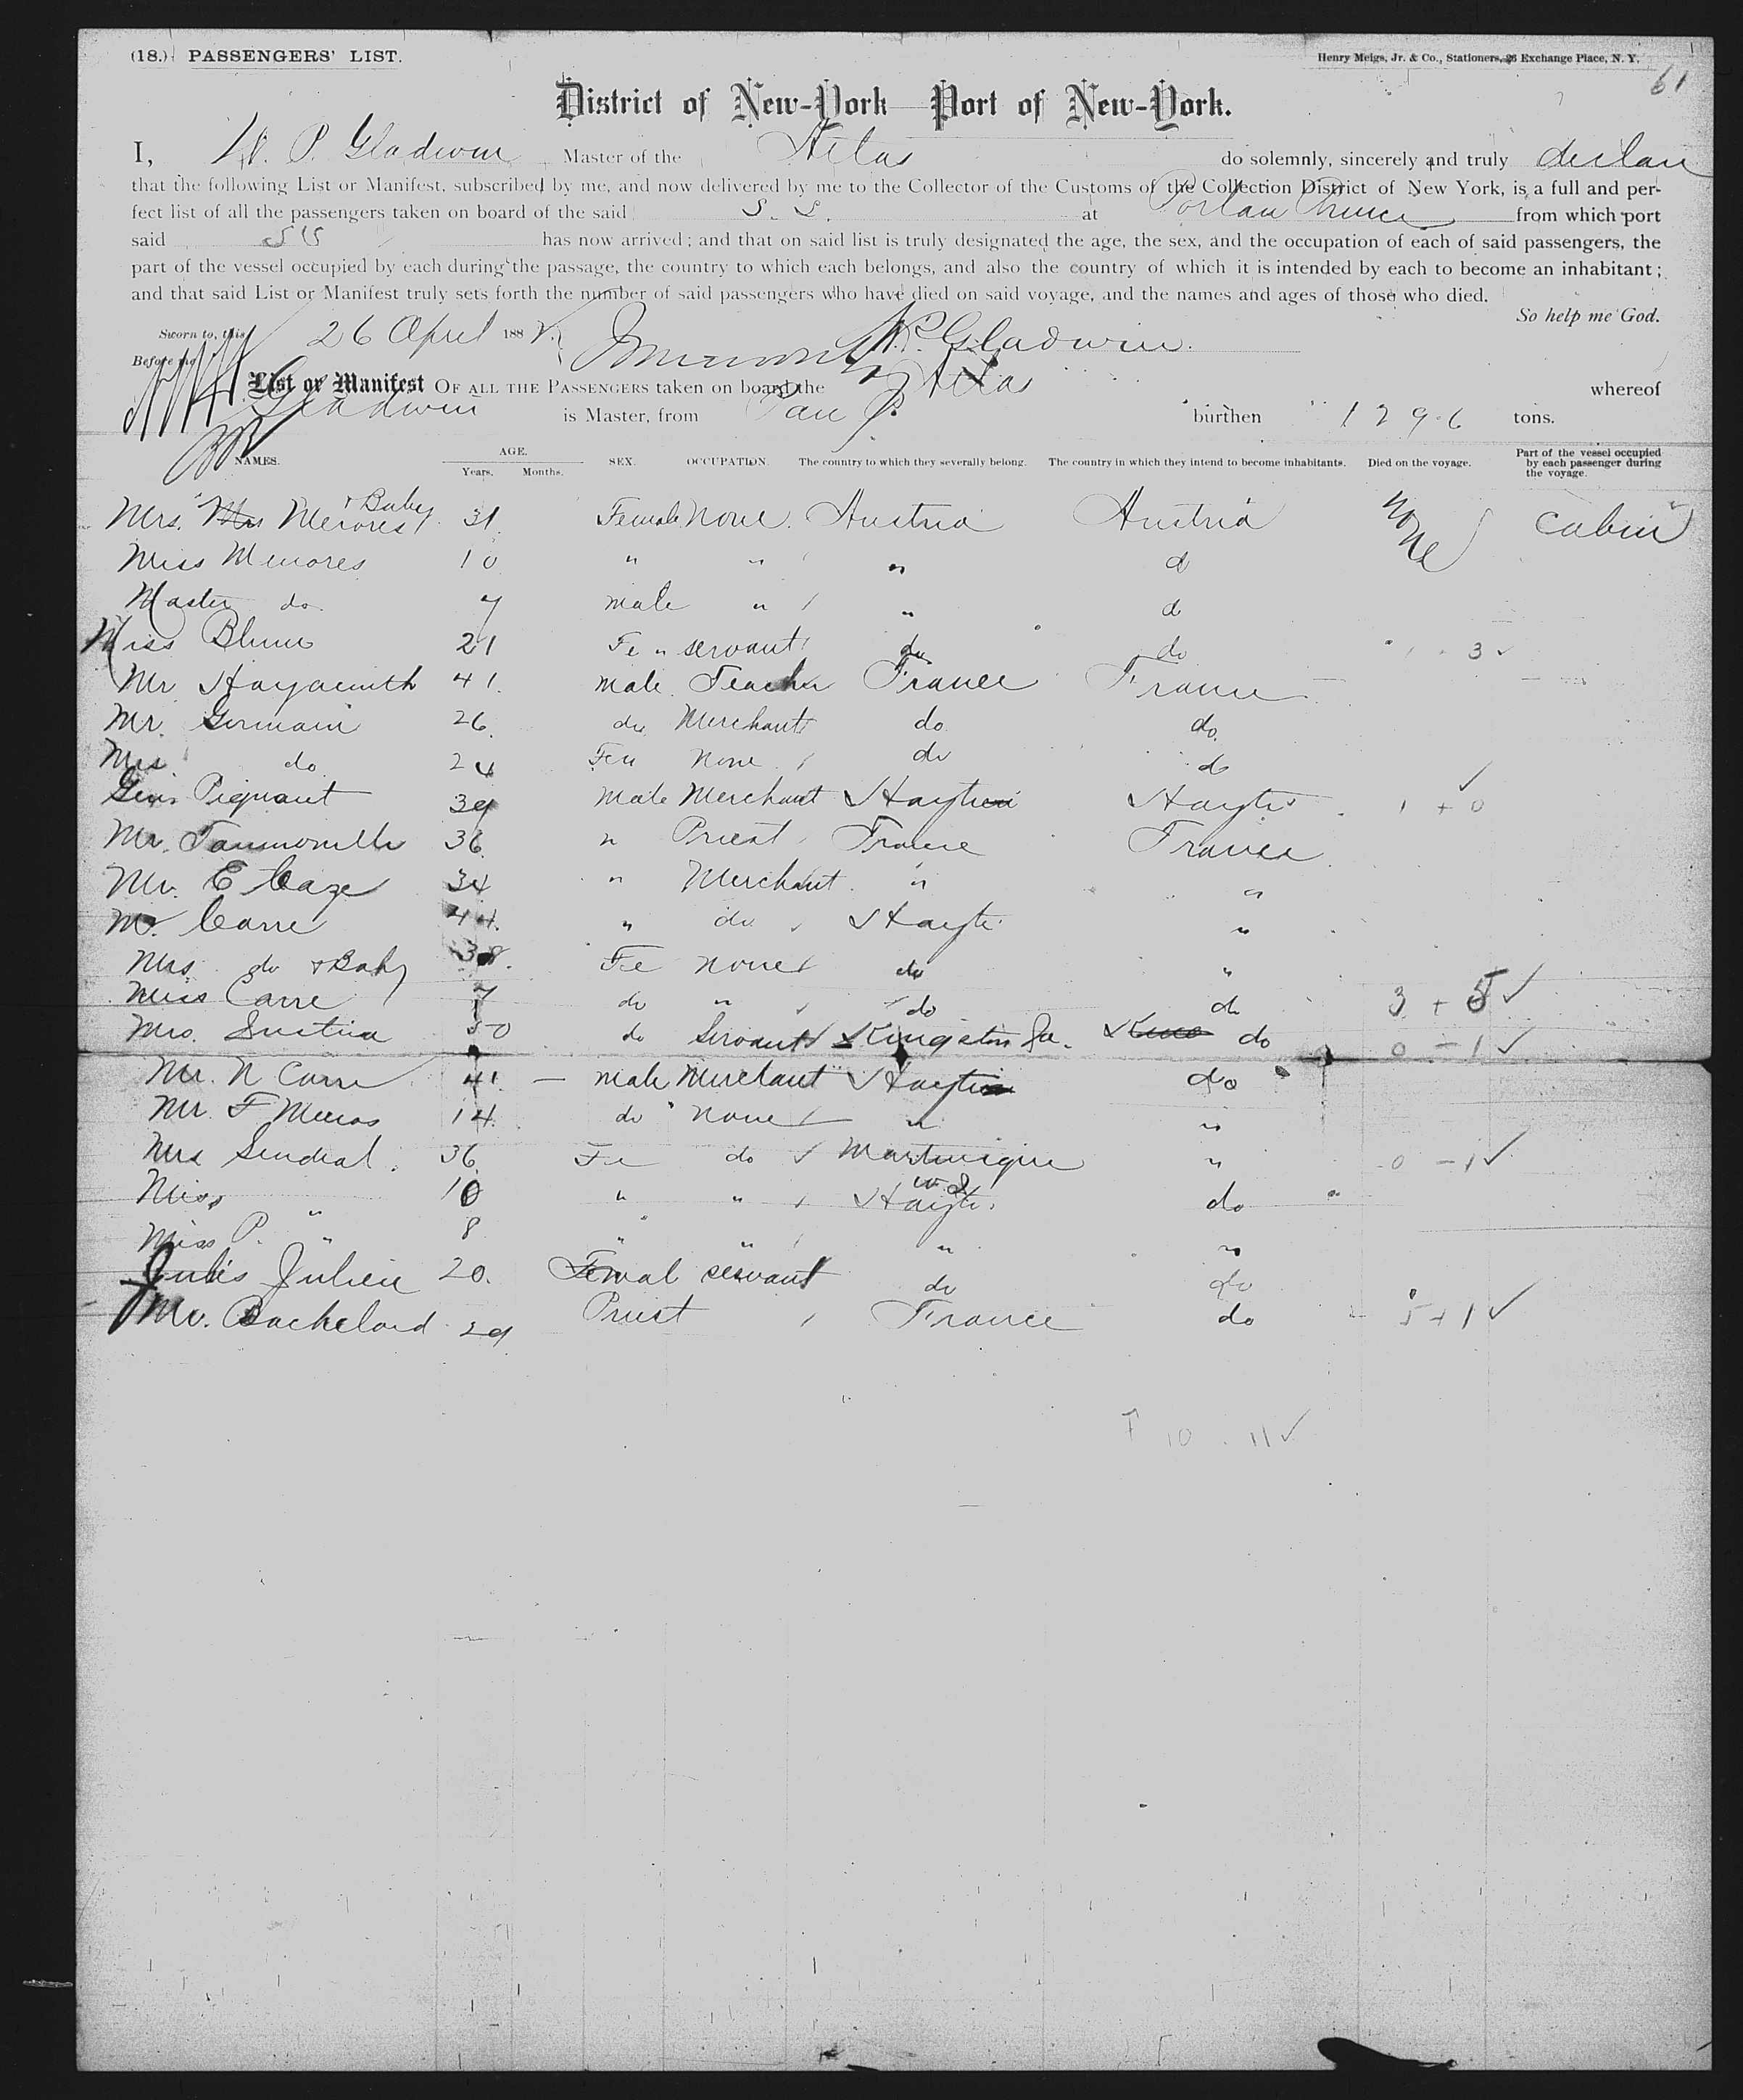 (18.) PASSENGERS' LIST.
Henry Meigs, Jr. & Co., Stationers, 26 Exchange Place, N. Y.
61
District of New-York—Port of New-York.
I, W. P. Gladwin Master of the Atlas do solemnly, sincerely and truly declare
that the following List or Manifest, subscribed by me, and now delivered by me to the Collector of the Customs of the Collection District of New York, is a full and per-
fect list of all the passengers taken on board of the said S. S. at Portau Prince from which port
said SS has now arrived; and that on said list is truly designated the age, the sex, and the occupation of each of said passengers, the
part of the vessel occupied by each during the passage, the country to which each belongs, and also the country of which it is intended by each to become an inhabitant;
and that said List or Manifest truly sets forth the number of said passengers who have died on said voyage, and the names and ages of those who died.
So help me God.
Sworn to, this 26 April 188 W.P. Gladwin.
Before me
List or Manifest OF ALL THE PASSENGERS taken on board the Atlas whereof
Gladwin is Master, from Pau P. burthen 1296 tons.
NAMES. AGE. Years. Months. SEX. OCCUPATION. The country to which they severally belong. The country in which they intend to become inhabitants. Died on the voyage. Part of the vessel occupied by each passenger during the voyage.
Mrs. Mrs & Baby 31. Female None. Austria Austria None Cabin
Miss 10 " " " d
Master do 7 male " " d
Miss Blum 21 Fe " servant do do 3
Mr Hayacinth 41. male. Teacher France France
Mr. Germain 26. do Merchant do do.
Mrs do 24 Fem None do do
Piquant 39 Male Merchant Haytien Hayti 1 + 0
Mr. 36. " Priest France France
Mr. E Caze 34 " Merchant. " "
Mr. Carre 44. " do Hayti "
Mrs. do & Baby 38. Fe None do "
Miss Carre 7 do " do do 3 + 5
Mrs. 50 do Servant Kingston Ja. King do 0 - 1
Mr. N Carre 41. — male Merchant Haytien do
Mr. F 14. do None " "
Mrs Sendral. 36. Fe do Martinique "  0 - 1
W I
Miss " 10 " " Hayti. do
Miss P. " 8 " " " "
Julis Julien 20. Femal servant do do
Mr. Bachelard 29 Priest France do 5 + 1
10 . 11